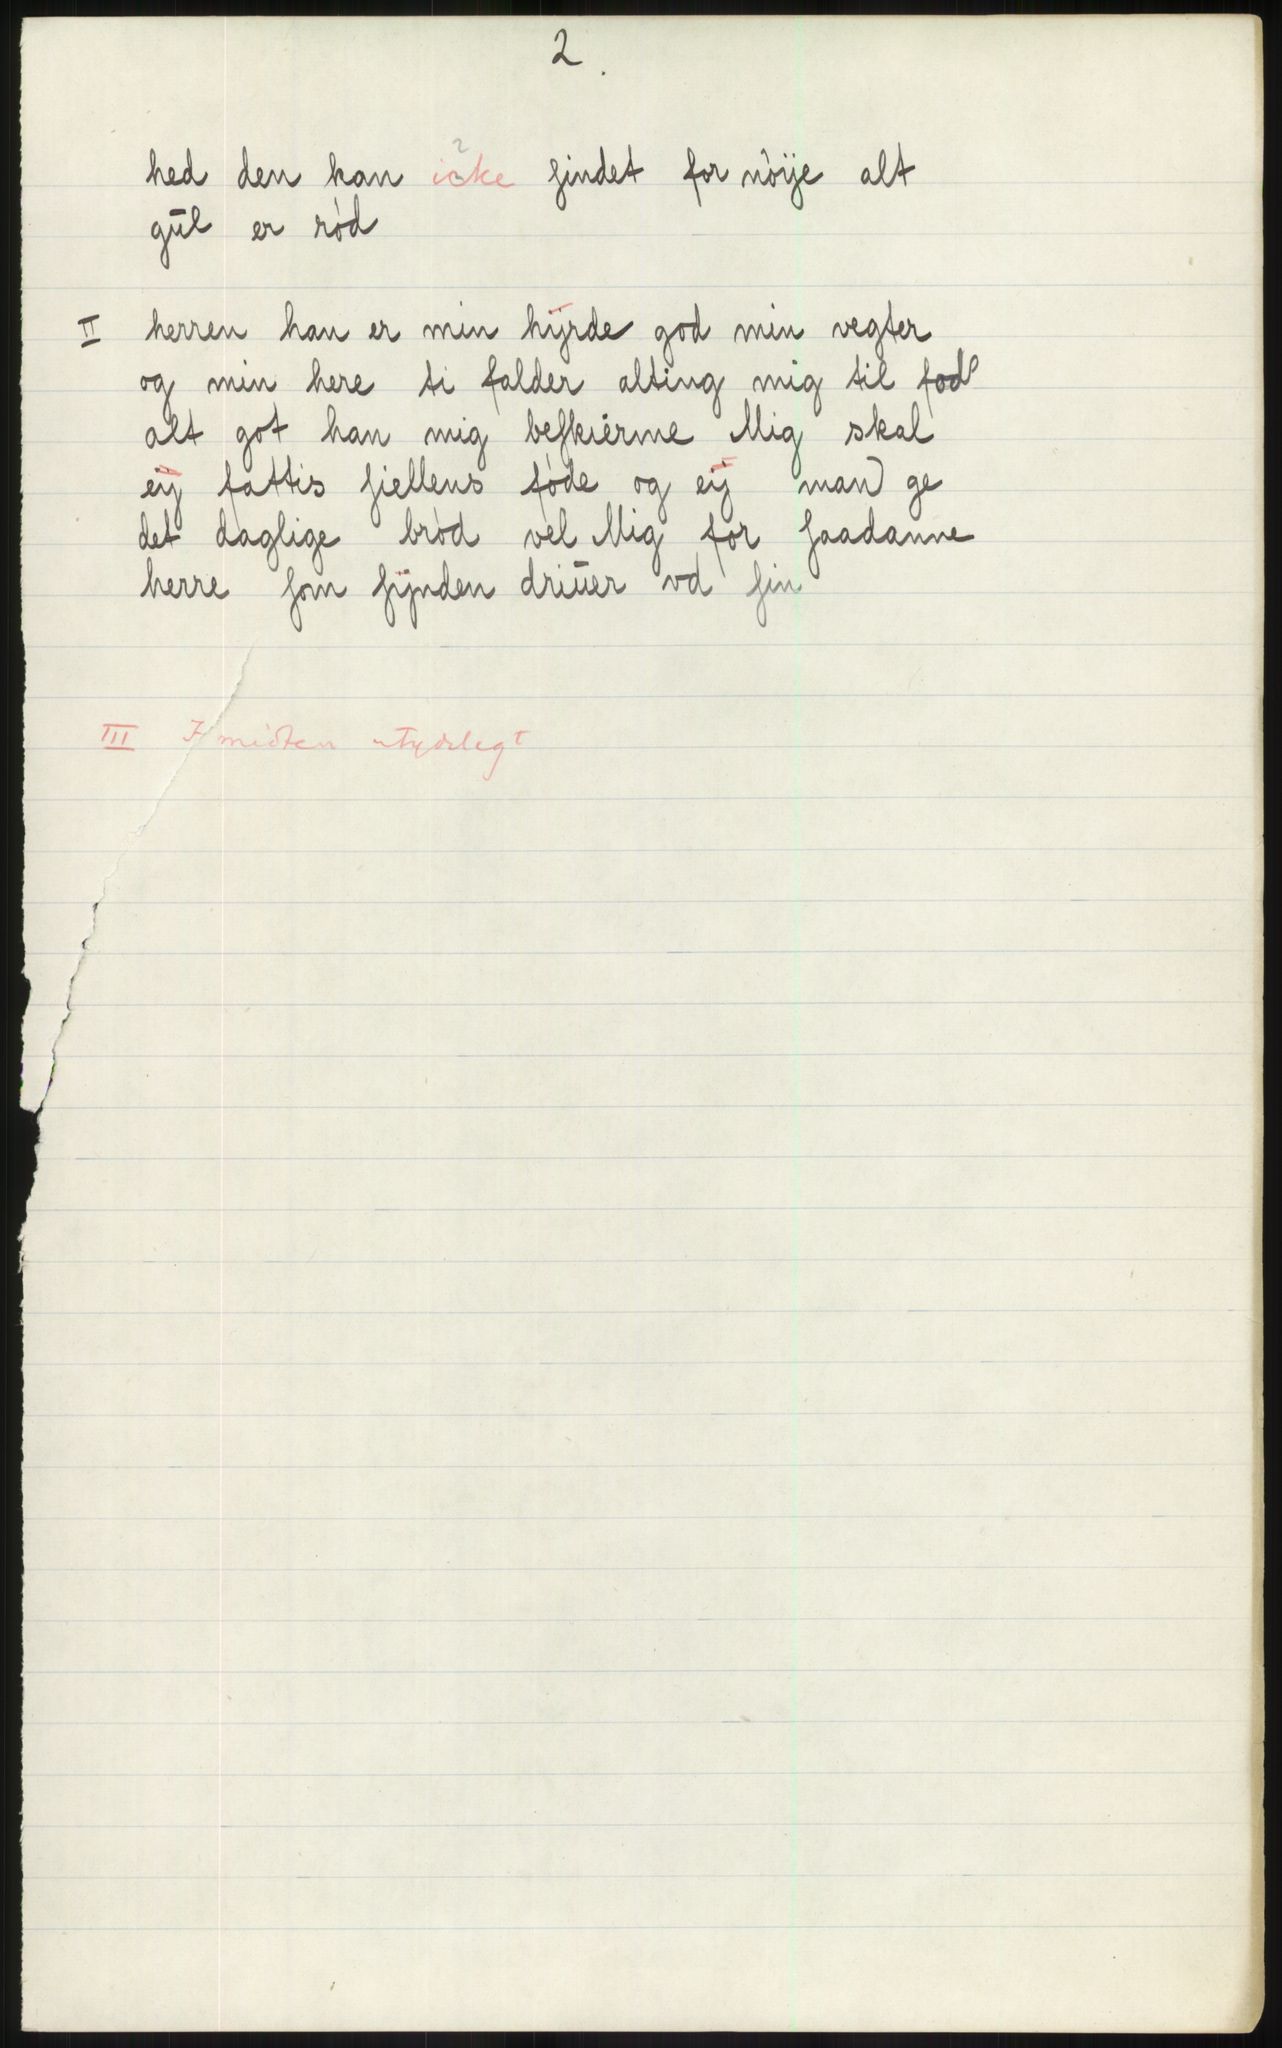 2.
hed den kan icke ſindet for nòÿe alt
gūl er ròd
II herren han er min hÿrde god min vegter
og min here ti falder alting mig til fod
alt got han mig beſkièrme Mig skal
eÿ fattis ſiellens føde og eÿ man ge
det daglige bròd vel Mig for ſaadanne
herre ſom ſÿnden driūer vd ſin
III I midten utydelegt